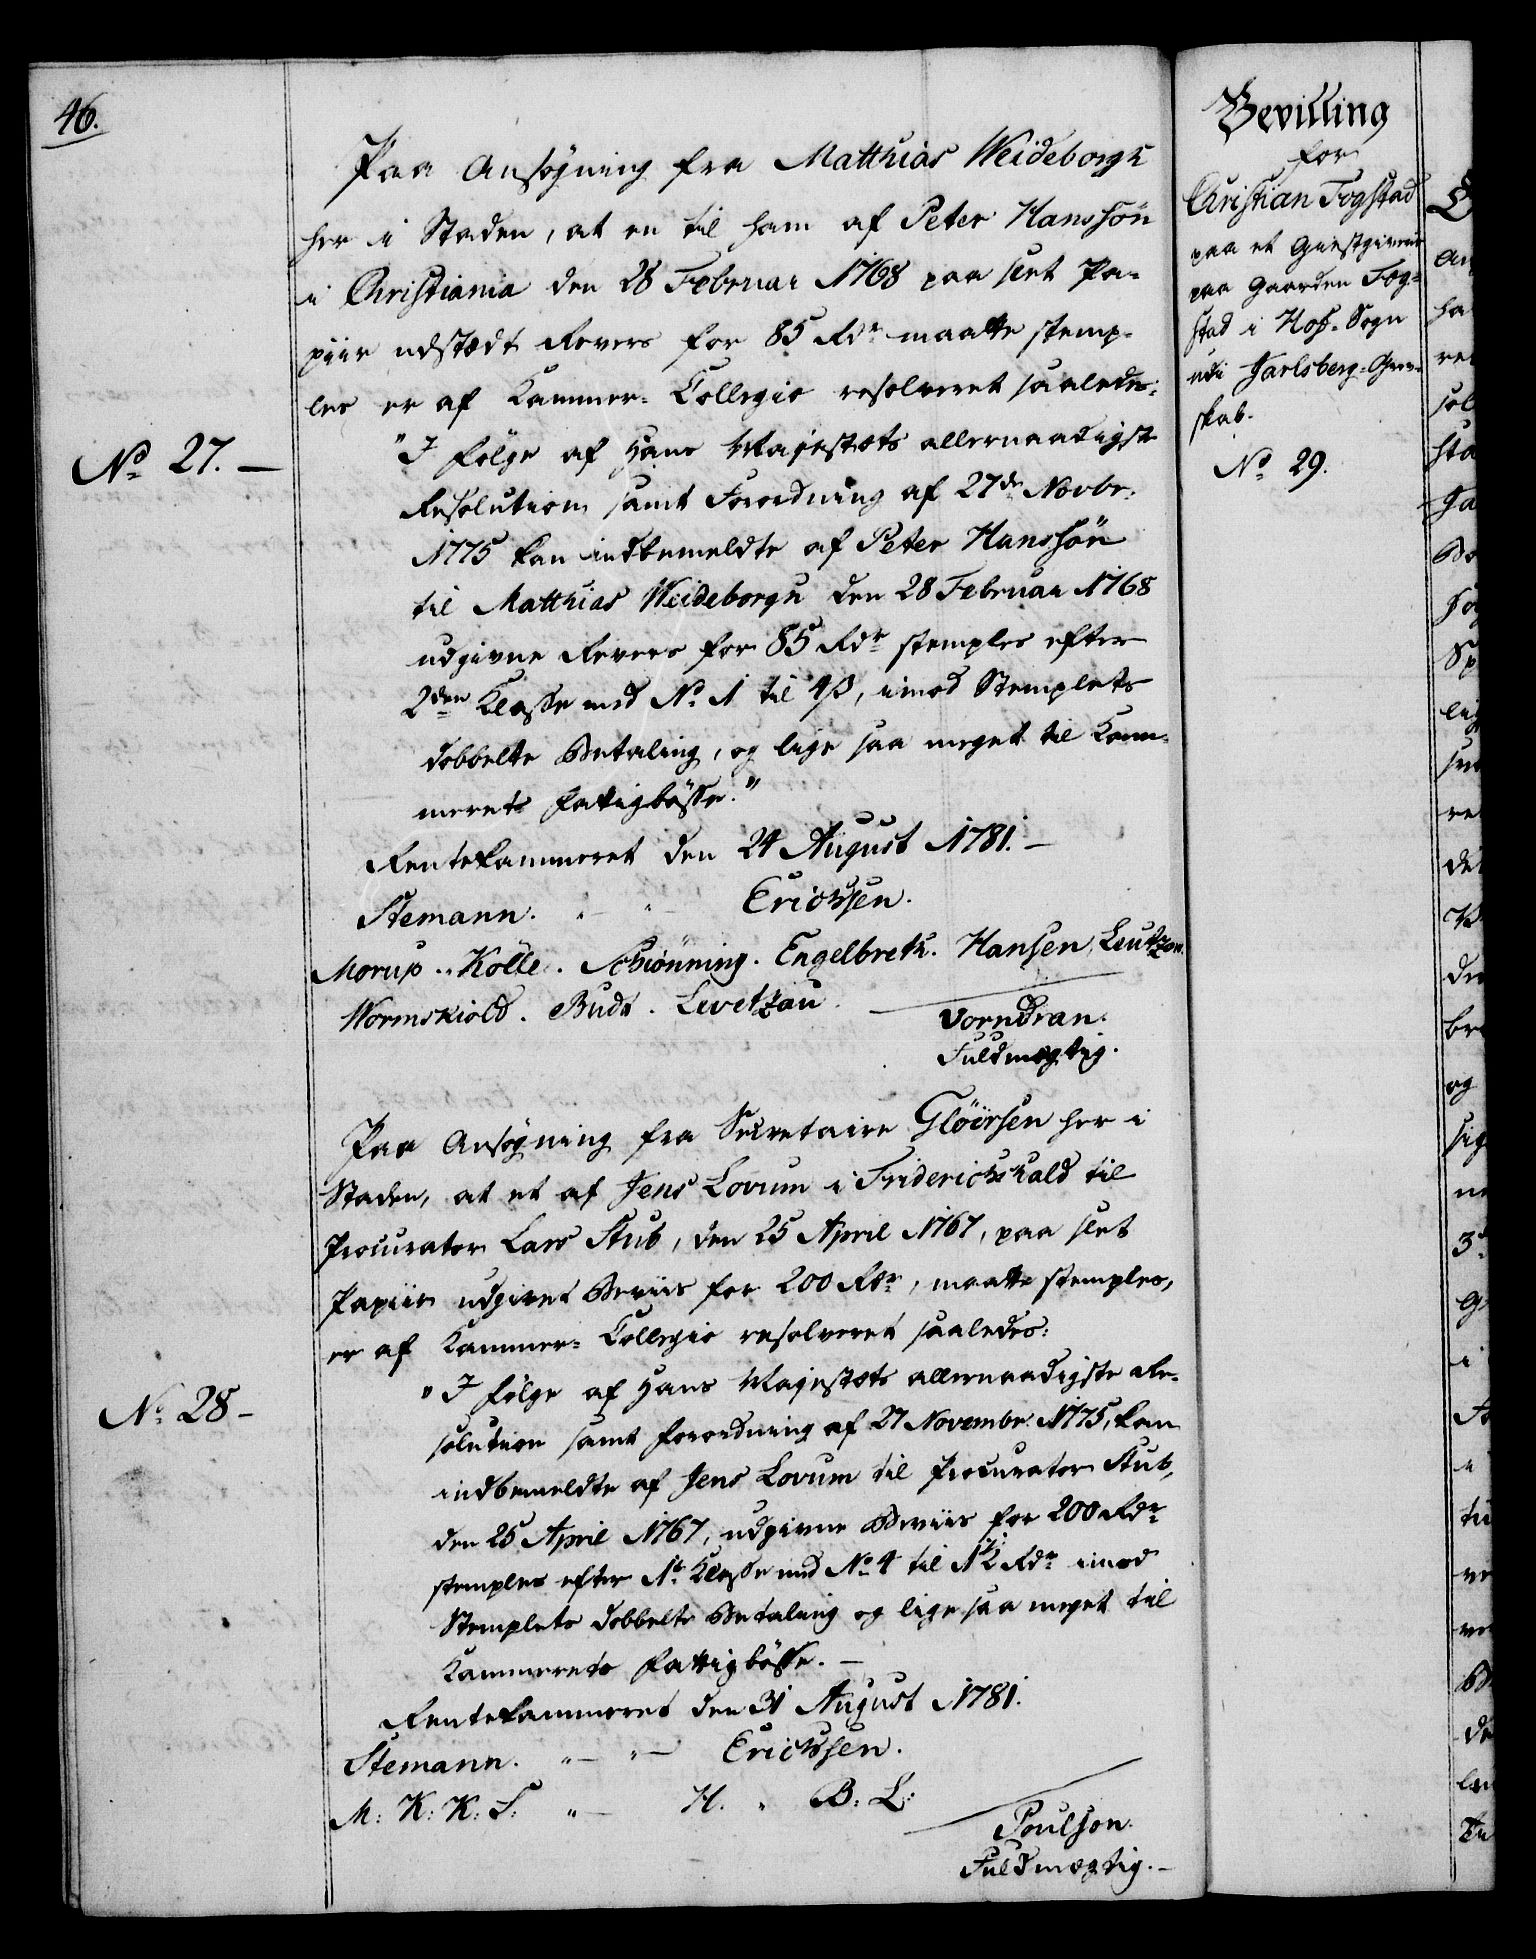 46.
Paa Ansøgning fra Matthias Weideborgh
her i Staden, at en til ham af Peter Hanssøn
i Christiania den 28 Februar 1768 paa slet Pa-
piir udstædt Revers for 85 Rdr maatte stemp-
les er af Kammer-Collegio resolveret saaledes:
No 27.—
"I følge af Hans Majestæts allernaadigste
Resolution samt Forordning af 27de Novbr:
1775 kan indbemeldte af Peter Hanssøn
til Matthias Weideborgh den 28 Februar 1768
udgivne Revers for 85 Rdr stemples efter
2den Klasse med No. 1 til 4 ß, imod Stemplets
dobbelte Betaling, og lige saa meget til Kam-
merets Fattigbøsse."
Rentekammeret den 24 August 1781.—
Stemann. Erichssen.
Morup. Kölle. Schiönning. Engelbreth. Hansen,
Wormskiold. Budt. Levetzau.
Vorndran.
Fuldmægtig.
Paa Ansøgning fra Secretaire Glöörsen her i
Staden, at et af Jens Lorum i Friderichshald til
Procurator Lars Stub, den 25 April 1767, paa slet
Papiir udgivet Beviis for 200 Rdr, maatte stemples,
er af Kammer-Collegio resolveret saaledes:
No 28-
"I følge af Hans Majestæts allernaadigste Re-
solution samt Forordning af 27 Novembr 1775, kan
indbemeldte af Jens Lorum til Procurator Stub,
den 25 April 1767, udgivne Beviis for 200 Rdr
stemples efter 1te Klasse med No 4 til 1½ Rdr imod
Stemplets dobbelte Betaling og lige saa meget til
Kammerets Fattigbøsse.—
Rentekammeret den 31 August 1781.
Stemann. Erichssen.
M: K: K: S: H. B: L:
Poulson.
Fuldmægtig.—
Bevilling
for
Christian Fogstad
paa et Giæstgiverie
paa Gaarden Fog-
stad i Hof-Sogn
udi Jarlsberg-Grev-
skab.
No 29.